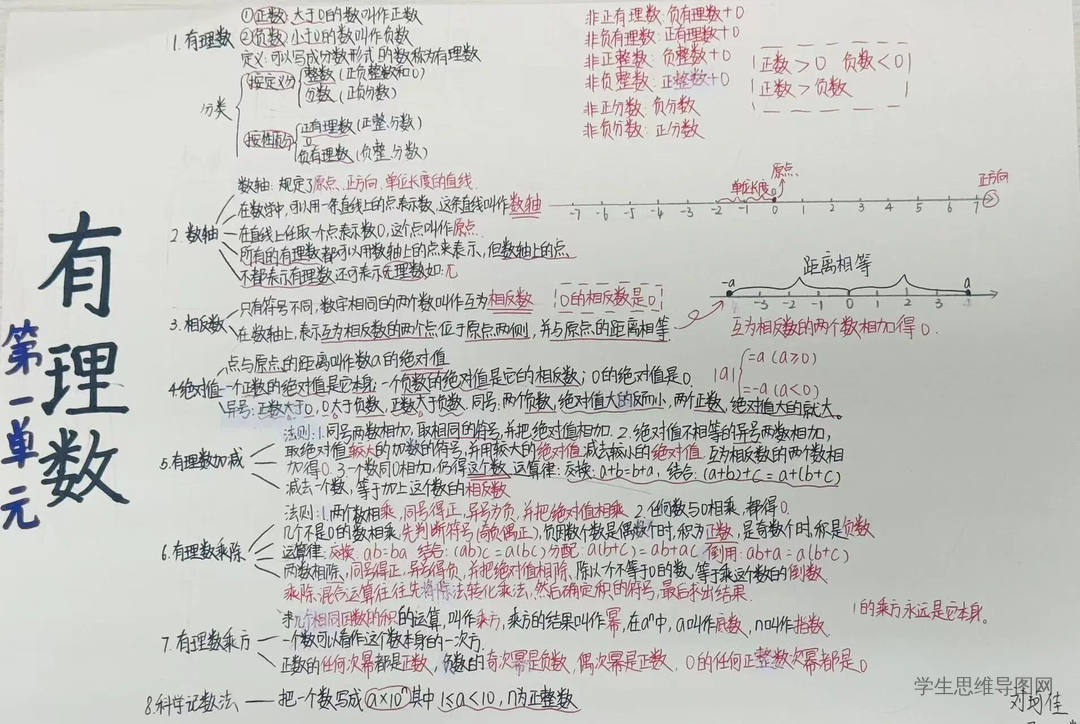 有理数
第一单元
1.有理数
①正数:大于0的数叫作正数
②负数:小于0的数叫作负数
定义:可以写成分数形式的数称为有理数
分类
按定义分
整数(正负整数和0)
分数(正负分数)
按性质分
正有理数(正整.分数)
0
负有理数(负整.分数)
非正有理数:负有理数+0
非负有理数:正有理数+0
非正整数:负整数+0
非负整数:正整数+0
非正分数:负分数
非负分数:正分数
正数>0 负数<0
正数>负数
2.数轴
数轴:规定了原点、正方向、单位长度的直线.
在数学中,可以用一条直线上的点表示数,这条直线叫作数轴
在直线上任取一个点表示数0,这个点叫作原点.
所有的有理数都可以用数轴上的点来表示,但数轴上的点
不都表示有理数还可表示无理数如:π
原点
单位长度
正方向
-7 -6 -5 -4 -3 -2 -1 0 1 2 3 4 5 6 7
3.相反数
只有符号不同,数字相同的两个数叫作互为相反数
0的相反数是0
在数轴上,表示互为相反数的两个点位于原点两侧,并与原点的距离相等
距离相等
-a a
-3 -2 -1 0 1 2 3
互为相反数的两个数相加得0.
4.绝对值
点与原点的距离叫作数a的绝对值
一个正数的绝对值是它本身;一个负数的绝对值是它的相反数;0的绝对值是0.
异号:正数大于0,0大于负数,正数大于负数.同号:两个负数,绝对值大的反而小,两个正数,绝对值大的就大。
|a|
=a(a≥0)
=-a(a<0)
5.有理数加减
法则:1.同号两数相加,取相同的符号,并把绝对值相加.2.绝对值不相等的异号两数相加,
取绝对值较大的加数的符号,并用较大的绝对值减去较小的绝对值.互为相反数的两个数相
加得0.3.一个数同0相加,仍得这个数.运算律:交换:a+b=b+a,结合:(a+b)+c=a+(b+c)
减去一个数,等于加上这个数的相反数
6.有理数乘除
法则:1.两个数相乘,同号得正,异号为负,并把绝对值相乘.2.任何数与0相乘,都得0.
几个不是0的数相乘,先判断符号(奇负偶正),负因数个数是偶数个时,积为正数,是奇数个时,积是负数
运算律:交换:ab=ba 结合:(ab)c=a(bc)分配:a(b+c)=ab+ac 倒用:ab+a=a(b+c)
两数相除,同号得正,异号得负,并把绝对值相除.除以个不等于0的数,等于乘这个数的倒数
乘除混合运算往往先将除法转化乘法,然后确定积的符号,最后求出结果.
7.有理数乘方
求几个相同因数的积的运算,叫作乘方,乘方的结果叫作幂,在aⁿ中,a叫作底数,n叫作指数
一个数可以看作这个数本身的一次方.
正数的任何次幂都是正数,负数的奇次幂是负数,偶次幂是正数,0的任何正整数次幂都是0
1的乘方永远是它本身。
8.科学记数法
把一个数写成a×10ⁿ其中1≤a<10,n为正整数
学生思维导图网